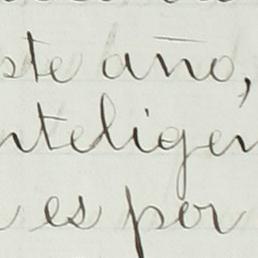 ste año,
nteligen
es por